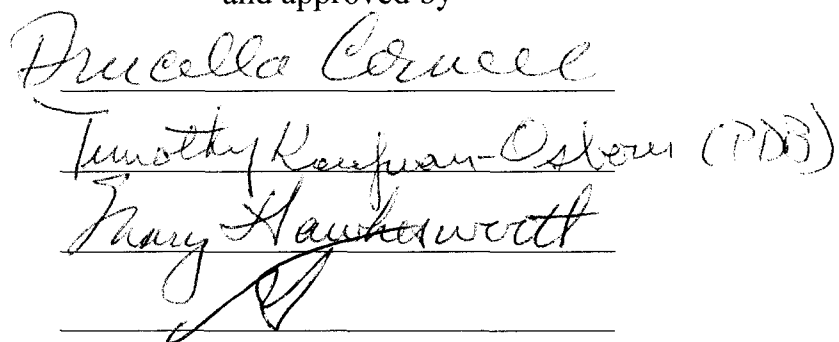 and approved by
Drucella Cornell
Timothy Kaufman-Osborn (PDB)
Mary Hawkesworth